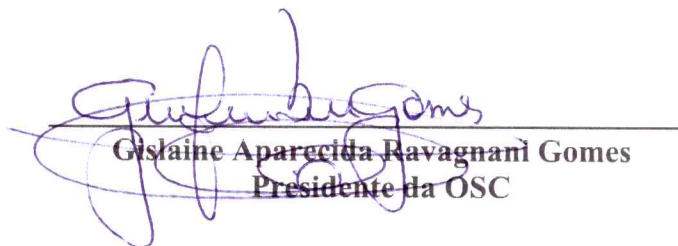 Gomes
Gislaine Aparecida Ravagnani Gomes
Presidente da OSC